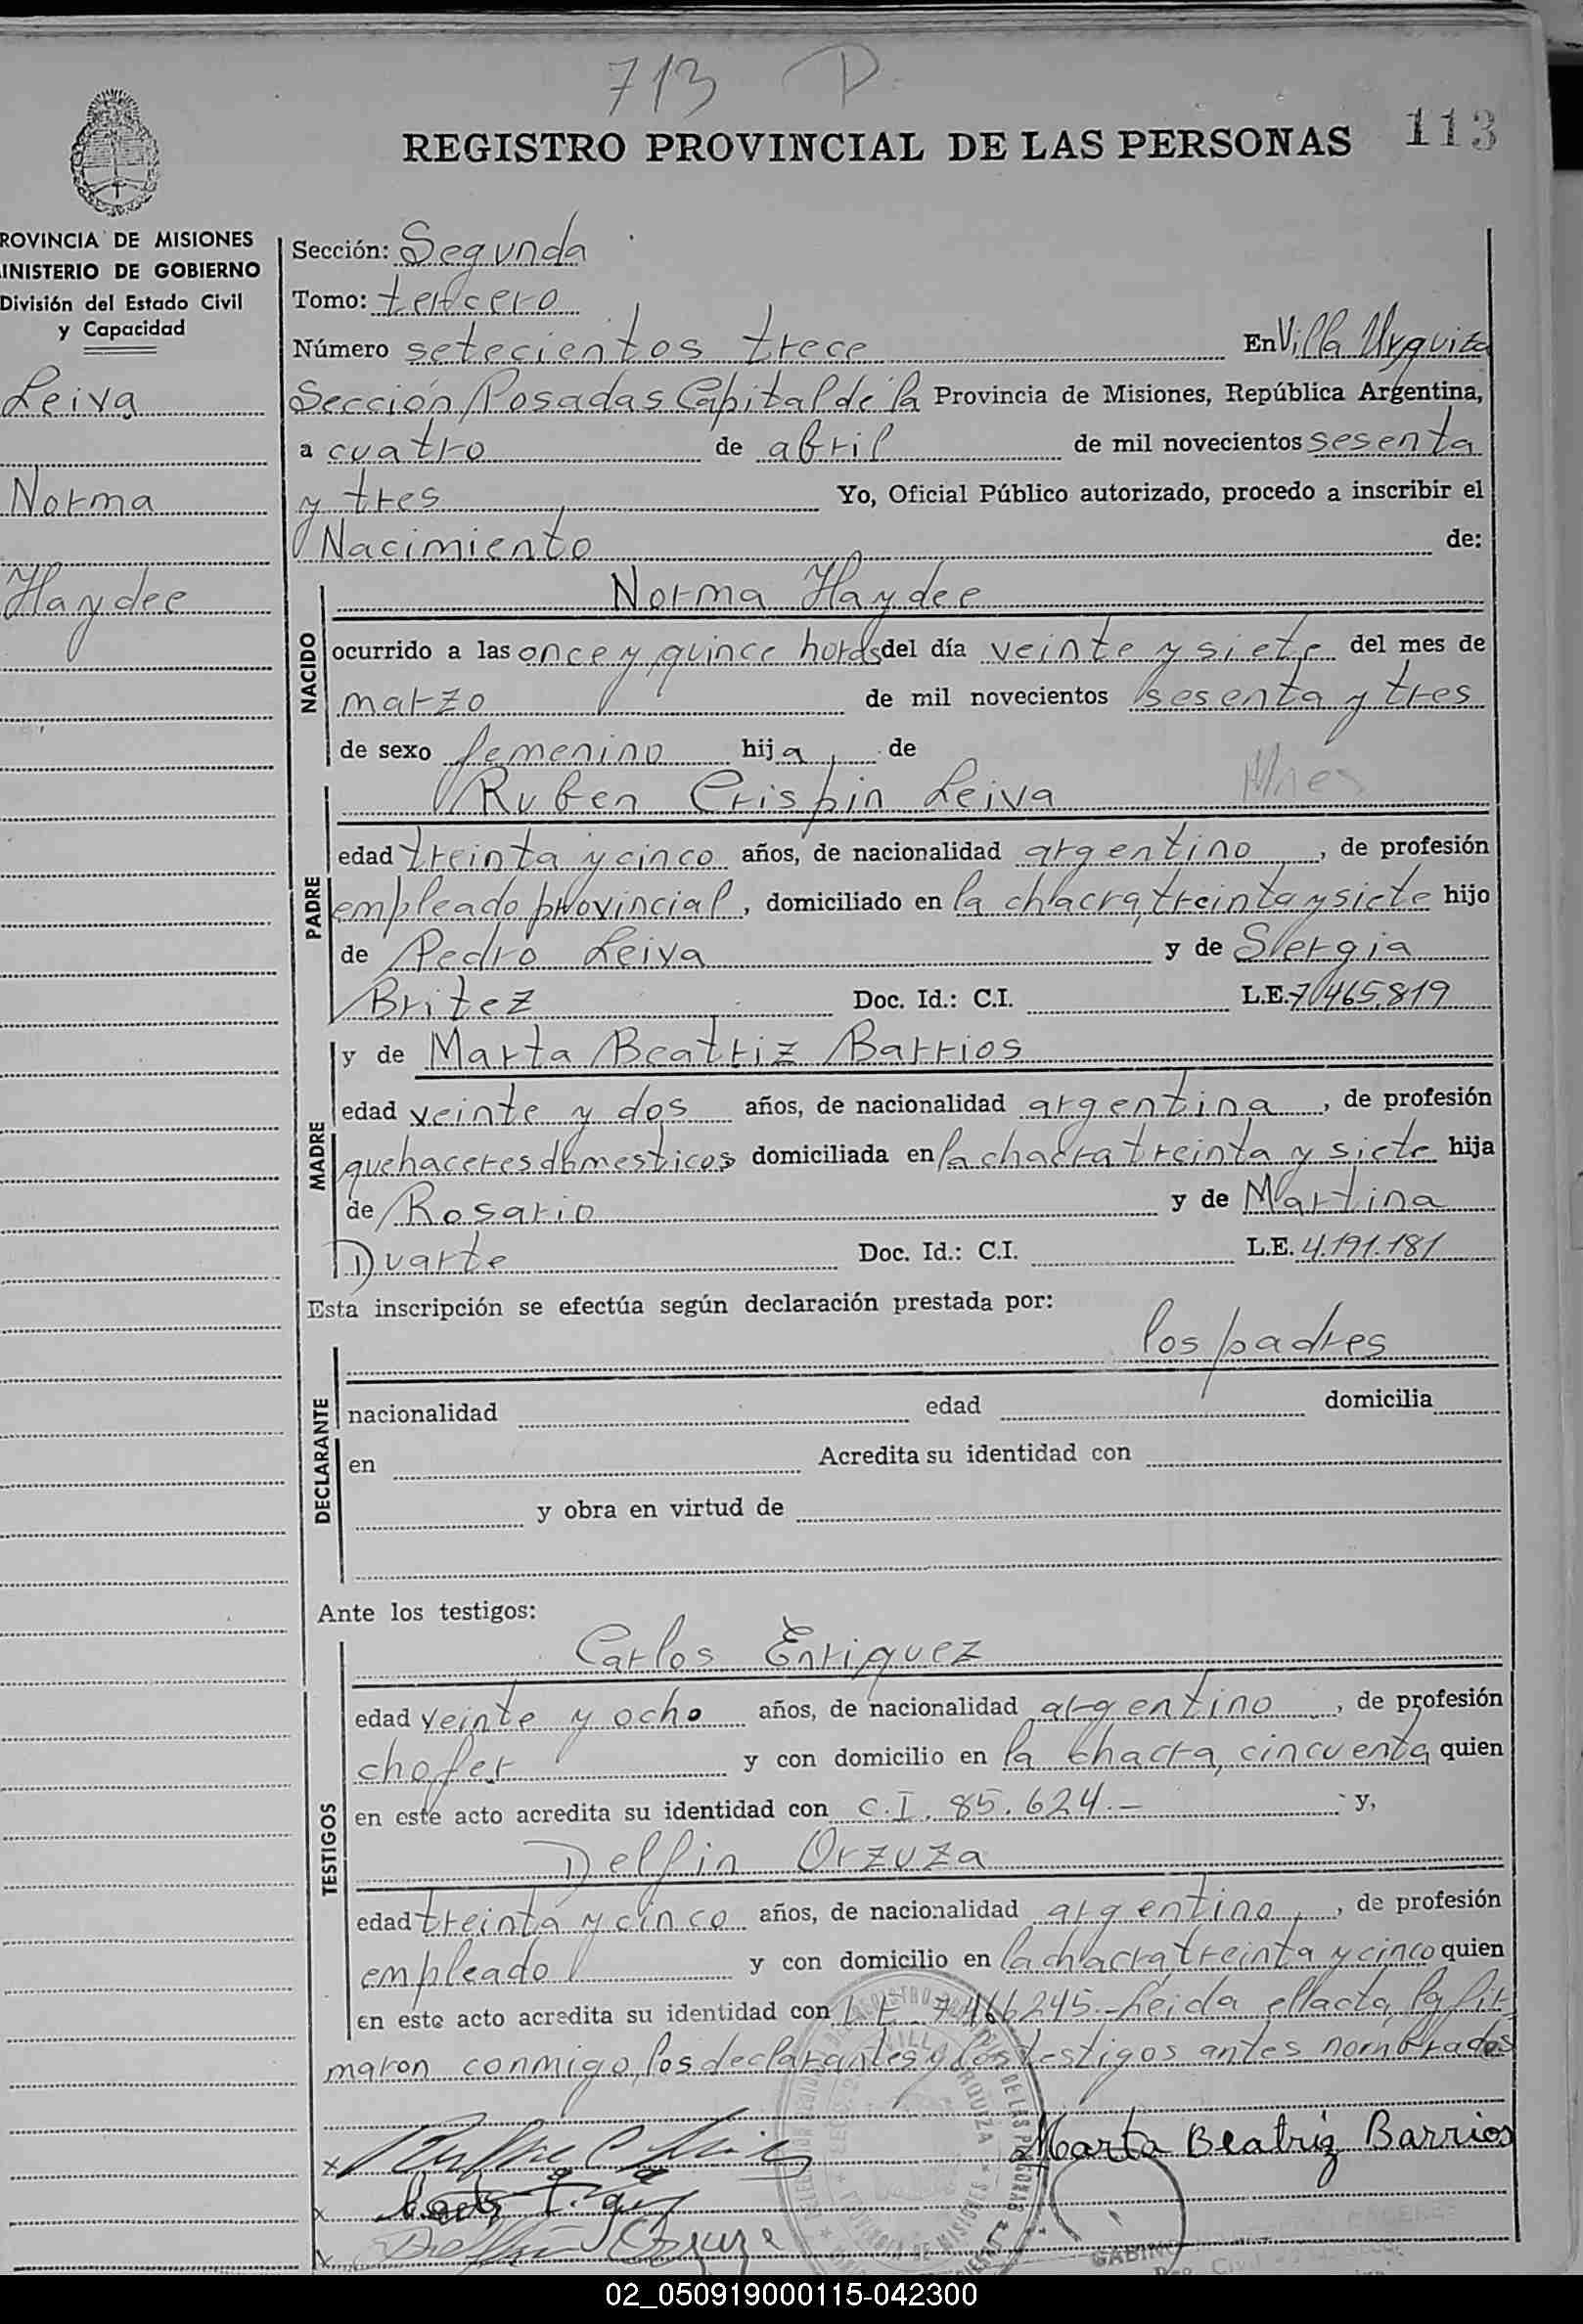 713 D
REGISTRO PROVINCIAL DE LAS PERSONAS 113
ROVINCIA DE MISIONES
INISTERIO DE GOBIERNO
División del Estado Civil
y Capacidad
Leiva
Norma
Haydee
Sección: Segunda
Tomo: tercero
Número setecientos trece En Villa Urquiza
Sección Posadas Capital de la Provincia de Misiones, República Argentina,
a cuatro de abril de mil novecientos sesenta
y tres Yo, Oficial Público autorizado, procedo a inscribir el
Nacimiento de:
NACIDO
Norma Haydee
ocurrido a las once y quince horas del día veinte y siete del mes de
marzo de mil novecientos sesenta y tres
de sexo femenino hija de
PADRE
Ruben Crispin Leiva
edad treinta y cinco años, de nacionalidad argentino, de profesión
empleado provincial, domiciliado en la chacra, treinta y siete hijo
de Pedro Leiva y de Sergia
Britez Doc. Id.: C.I. L.E. 7.465.819
MADRE
y de Marta Beatriz Barrios
edad veinte y dos años, de nacionalidad argentina, de profesión
quehaceres domesticos domiciliada en la chacra treinta y siete hija
de Rosario y de Martina
Duarte Doc. Id.: C.I. L.E. 4.191.181
Esta inscripción se efectúa según declaración prestada por:
los padres
DECLARANTE
nacionalidad edad domicilia
en Acredita su identidad con
y obra en virtud de
Ante los testigos:
TESTIGOS
Carlos Enriquez
edad veinte y ocho años, de nacionalidad argentino, de profesión
chofer y con domicilio en la chacra, cincuenta quien
en este acto acredita su identidad con C.I. 85.624.- y,
Delfin Orzuza
edad treinta y cinco años, de nacionalidad argentino, de profesión
empleado y con domicilio en la chacra treinta y cinco quien
en este acto acredita su identidad con L E 7466245.- Leida el acta, la fir
maron conmigo, los declarantes y los testigos antes nombrados
Marta Beatriz Barrios
02_050919000115-042300